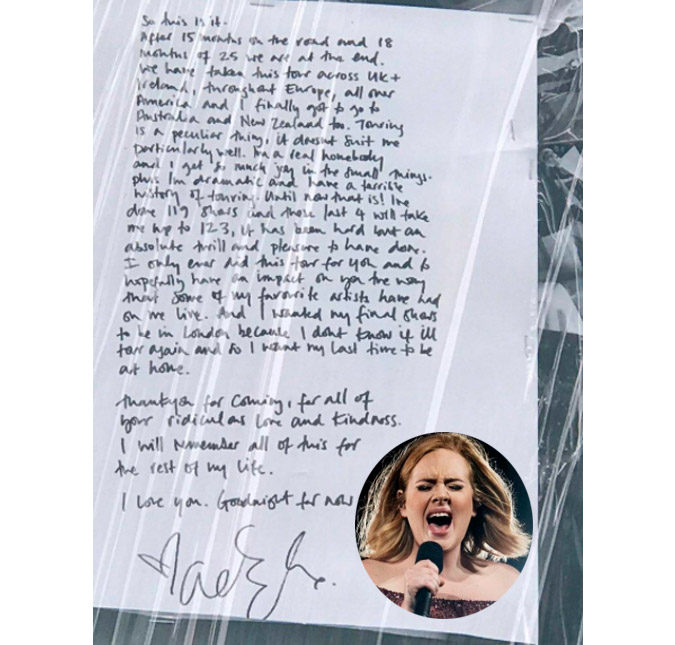 So this is it.
After 15 months on the road and 18
months of 25 we are at the end.
We have taken this tour across UK +
Ireland, throughout Europe, all over
America and I finally got to go to
Australia and New Zealand too. Touring
is a peculiar thing, it doesnt suit me
particularly well. Im a real homebody
and I get so much joy in the small things.
plus Im dramatic and have a terrible
history of touring. Until now that is! Ive
done 119 shows and these last 4 will take
me up to 123, it has been hard but an
absolute thrill and pleasure to have done.
I only ever did this tour for you and to
hopefully have an impact on you the way
that some of my favourite artists have had
on me live. And I wanted my final shows
to be in London because I dont know if ill
tour again and so I want my last time to be
at home.
Thankyou for coming, for all of
your ridiculous love and kindness.
I will remember all of this for
the rest of my life.
I love you. Goodnight for now